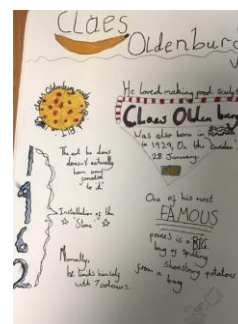 Claes
Oldenburg
He loved making food sculp
Claes Oldenburg
Was also born in
in 1929, On the Sweden's
28 January.
The art he does
doesn't actually
have any
to it
1962
Installation of the
"Store"
Normally,
he limits himself
with 7 colours.
One of his most
FAMOUS
pieces is a BIG
bag of spilling
from a shoestring potatoes
bag